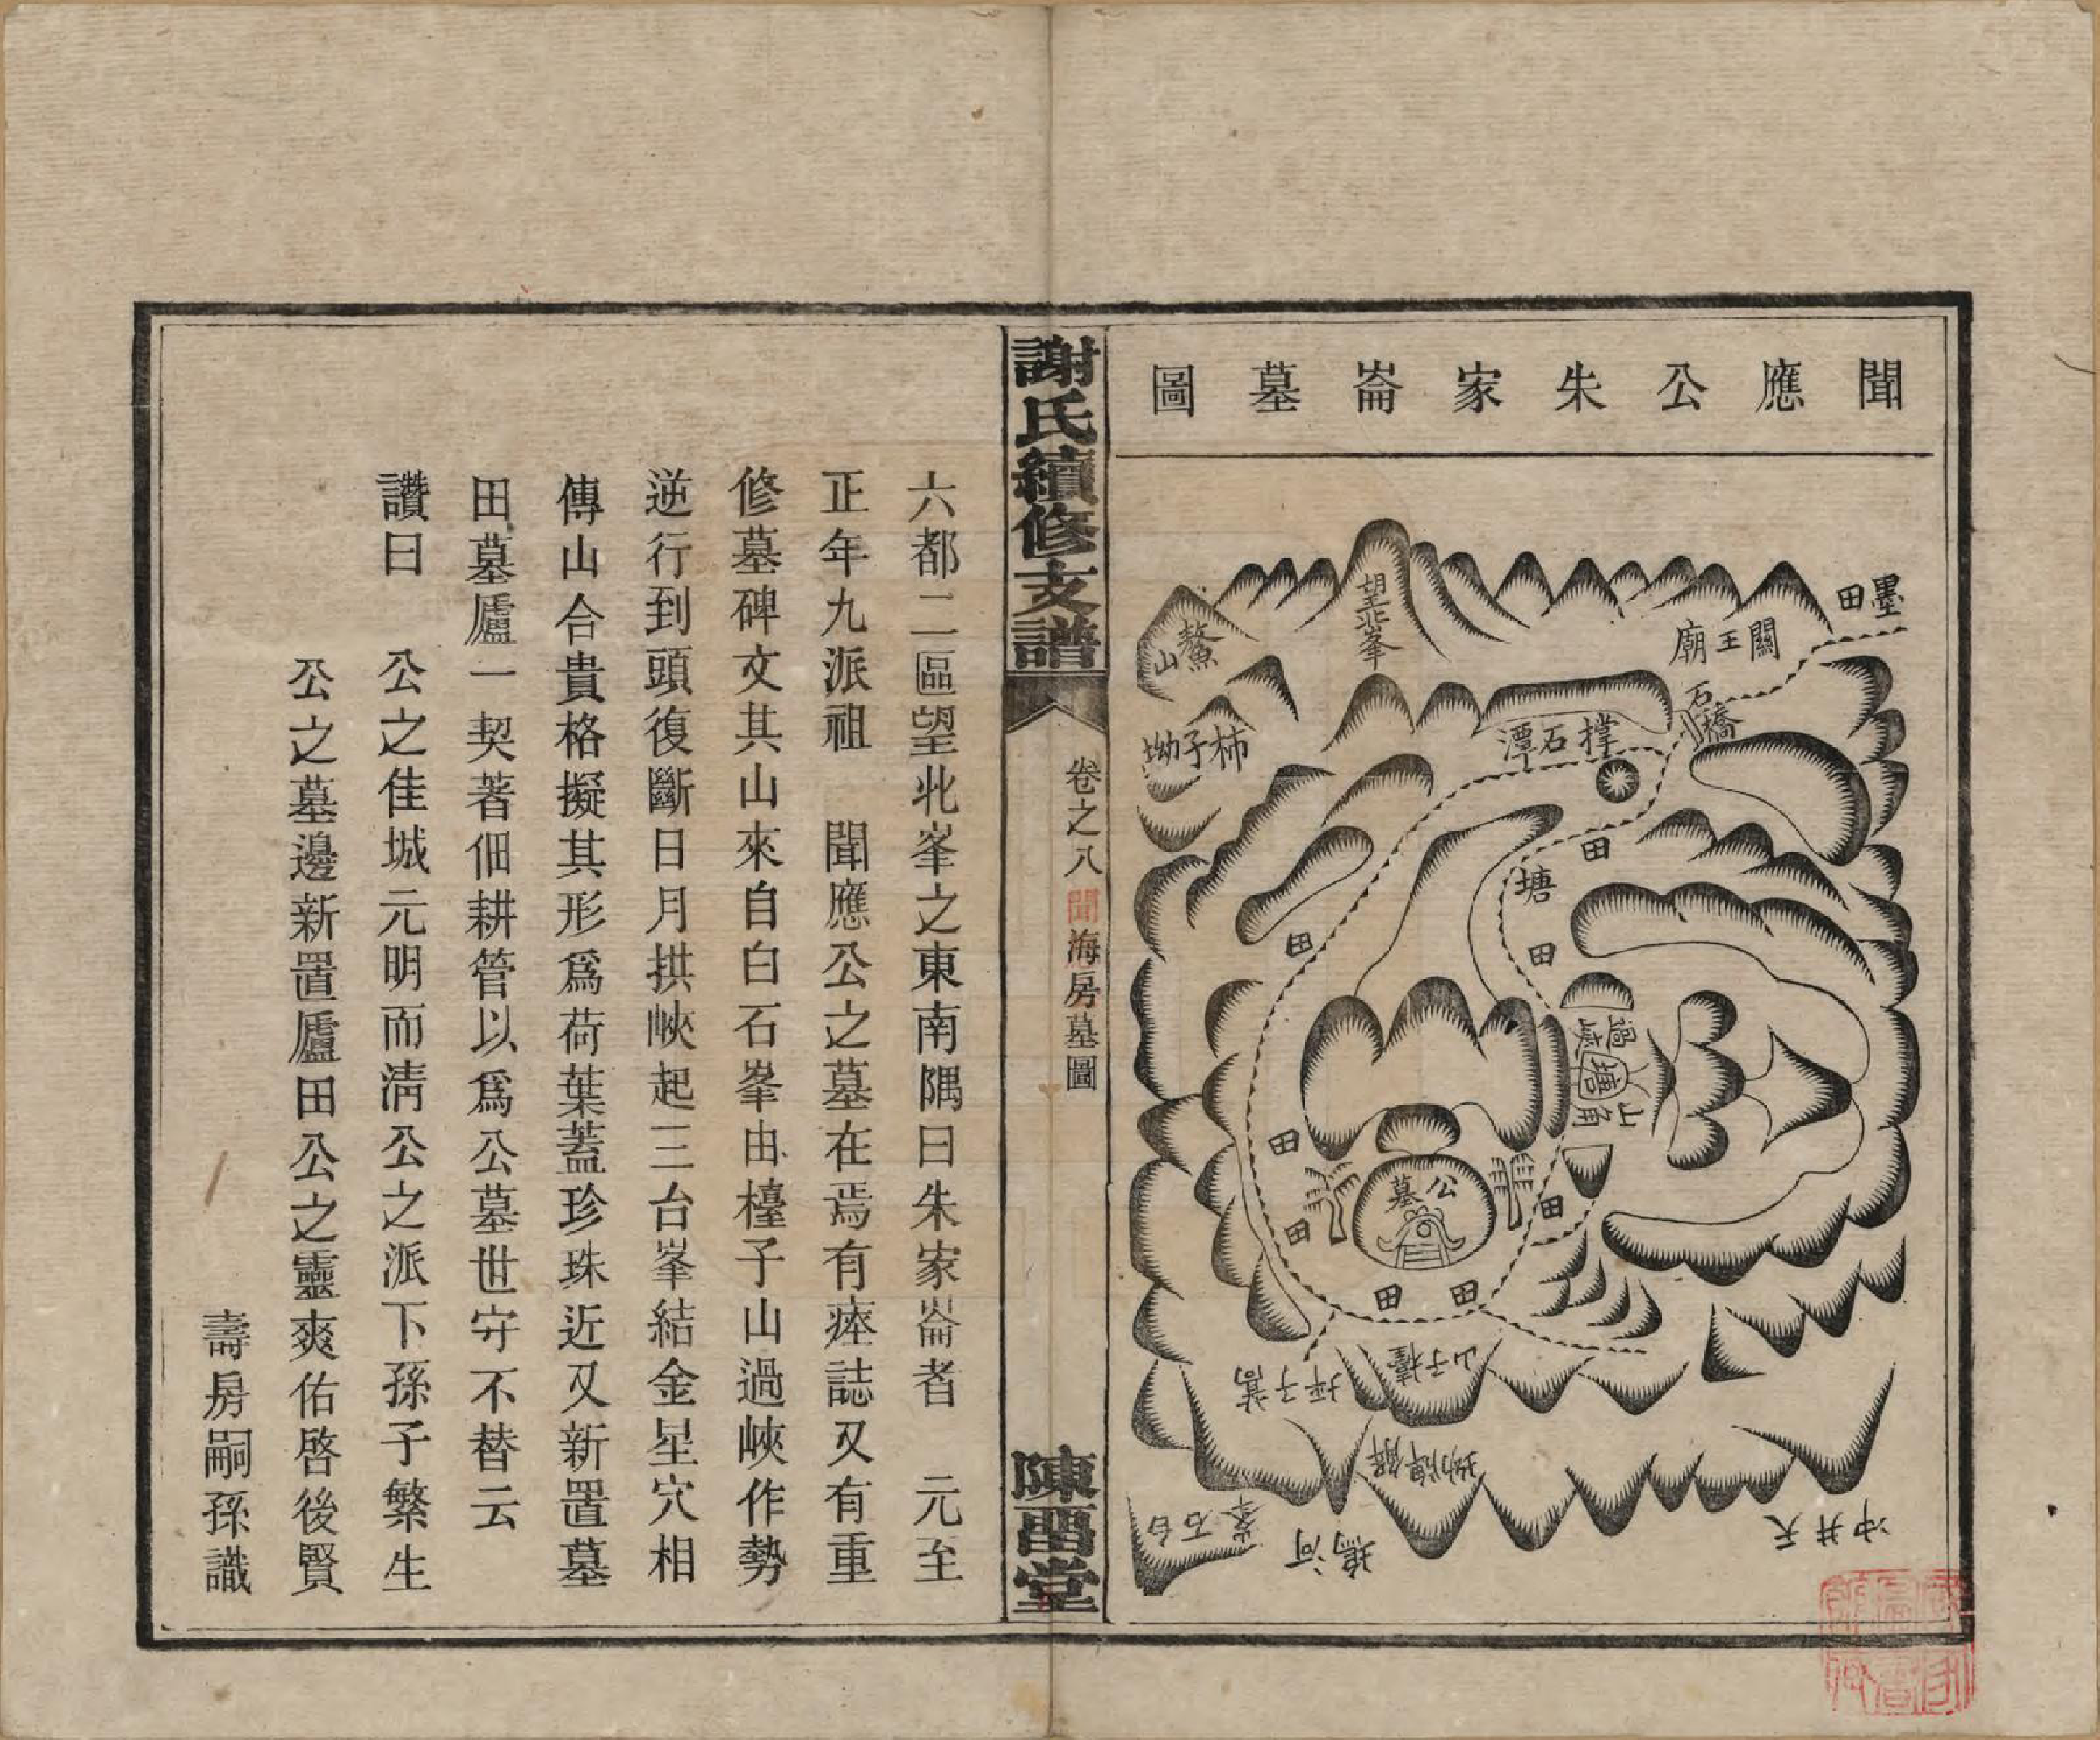 聞應公朱家崙墓圖
墨田
關王廟
石橋
撐石潭
望北峯
鰲山
柿子坳
田
塘
田
田
過峽
塘
山角
公墓
田
田
田
田
田
檯子山
蒿子坪
解牌坳
白石峯
河
天井冲
謝氏續修支譜
卷之八
聞海房墓圖
陳酉堂
六都二區望北峯之東南隅曰朱家崙者　元至
正年九派祖　聞應公之墓在焉有瘞誌又有重
修墓碑文其山來自白石峯由檯子山過峽作勢
逆行到頭復斷日月拱峽起三台峯結金星穴相
傳山合貴格擬其形爲荷葉蓋珍珠近又新置墓
田墓廬一契著佃耕管以爲公墓世守不替云
讚曰　公之佳城元明而淸公之派下孫子繁生
公之墓邊新置廬田公之靈爽佑啓後賢
壽房嗣孫識